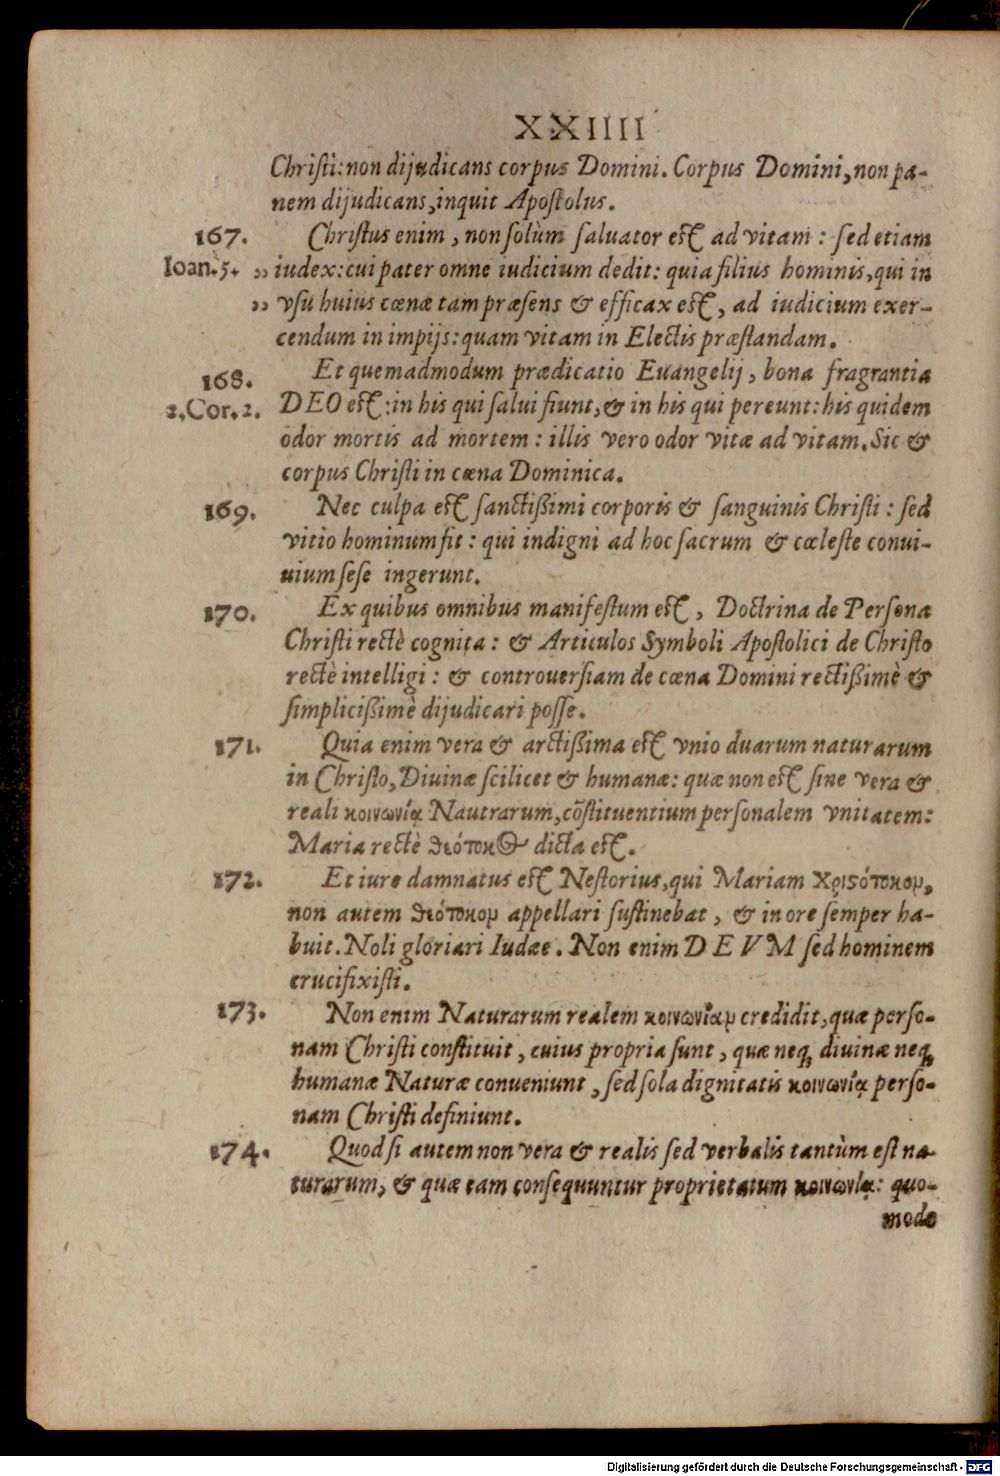 XXIIII
Chriſti: non dijudicans corpus Domini. Corpus Domini, non pa-
nem dijudicans, inquit Apoſtolus.
167. Chriſtus enim, non ſolùm ſaluator eſt ad vitam: ſed etiam
Ioan. 5. „ iudex: cui pater omne iudicium dedit: quia filius hominis, qui in
„ vſu huius cœnæ tam præſens & efficax eſt, ad iudicium exer-
cendum in impijs: quam vitam in Electis præſtandam.
168. Et quemadmodum prædicatio Euangelij, bona fragrantia
2. Cor. 2. DEO eſt: in his qui ſalui fiunt, & in his qui pereunt: his quidem
odor mortis ad mortem: illis vero odor vitæ ad vitam. Sic &
corpus Chriſti in cœna Dominica.
169. Nec culpa eſt ſanctißimi corporis & ſanguinis Chriſti: ſed
vitio hominum fit: qui indignì ad hoc ſacrum & cœleſte conui-
uium ſeſe ingerunt.
170. Ex quibus omnibus manifeſtum eſt, Doctrina de Perſona
Chriſti rectè cognita: & Articulos Symboli Apoſtolici de Chriſto
rectè intelligi: & controuerſiam de cœna Domini rectißimè &
ſimplicißimè dijudicari poſſe.
171. Quia enim vera & arctißima eſt vnio duarum naturarum
in Chriſto, Diuinæ ſcilicet & humanæ: quæ non eſt ſine vera &
reali κοινωνίᾳ Nautrarum, cõſtituentium perſonalem vnitatem:
Maria rectè θεότοκος dicta eſt.
172. Et iure damnatus eſt Neſtorius, qui Mariam χριϛότοκον,
non autem θεότοκον appellari ſuſtinebat, & in ore ſemper ha-
buit. Noli gloriari Iudæe. Non enim DEVM ſed hominem
crucifixiſti.
173. Non enim Naturarum realem κοινωνίαν credidit, quæ perſo-
nam Chriſti conſtituit, cuius propria ſunt, quæ neqꝫ diuinæ neqꝫ
humanæ Naturæ conueniunt, ſed ſola dignitatis κοινωνίᾳ perſo-
nam Chriſti definiunt.
174. Quod ſi autem non vera & realis ſed verbalis tantùm eſt na-
turarum, & quæ eam conſequuntur proprietatum κοινωνία: quo-
modo
Digitalisierung gefördert durch die Deutsche Forschungsgemeinschaft - DFG